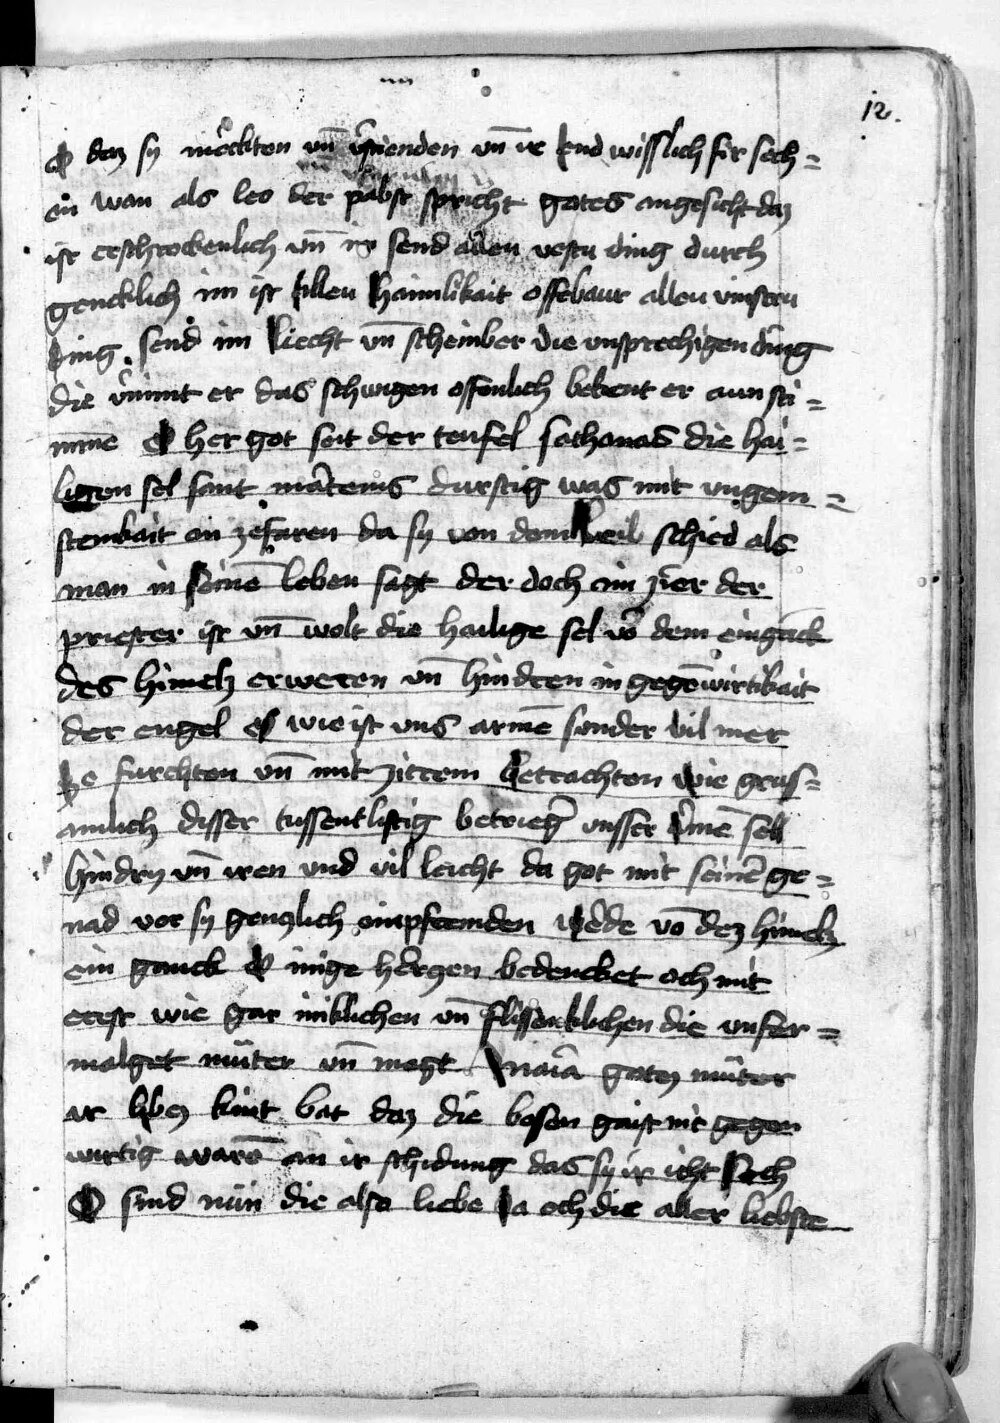 12.
O daz sy möckten vn̄ vnͤenden vn̄ ir end wisslich fir sech=
en wan als leo der pabst spricht gotes angesicht daz
ist erschrockenlich vn̄ im send allen vestn ding durch
gencklich im ist allen haimlikait offebaur allen vinstern
ding send im liecht vn̄ scheinber die vnsprechigen ding
die vnimt er das schwigen offenlich bekent er ain sti=
mme O her got seit der teufel sathanas die hai=
ligen sel sant martenis durstig was mit vngem=
stemkait an zefaren da sy von dem leib schied als
man in seinē leben sagt der doch ain zier der
priester ist vn̄ wolt die hailige sel vō dem eingāck
des himelz erweren vn̄ hindren in gegēwirtikait
der engel es wie ist vns armē sunder vil mer
ze furchten vn̄ mit zittern betrachten wie grus=
amlich disser tussentlistig betrieger vnsser armē sell
hindry vn̄ iren vnd vil leicht da got mit seinē ge=
nad vor sy genczlich empfremden wede vō dez himelz
ein gauck O inige herczen bedencket och mit
erest wie gar iniklichen vn̄ flissenklichen die vnfer=
malget mūter vn̄ magt Maria gotez mūter
ir libez kint bat daz die bosen gaist nit gegen
wirtig warē an ir schidung das sy ir icht sech
O sind nün die also liebe ia och die aller liebste